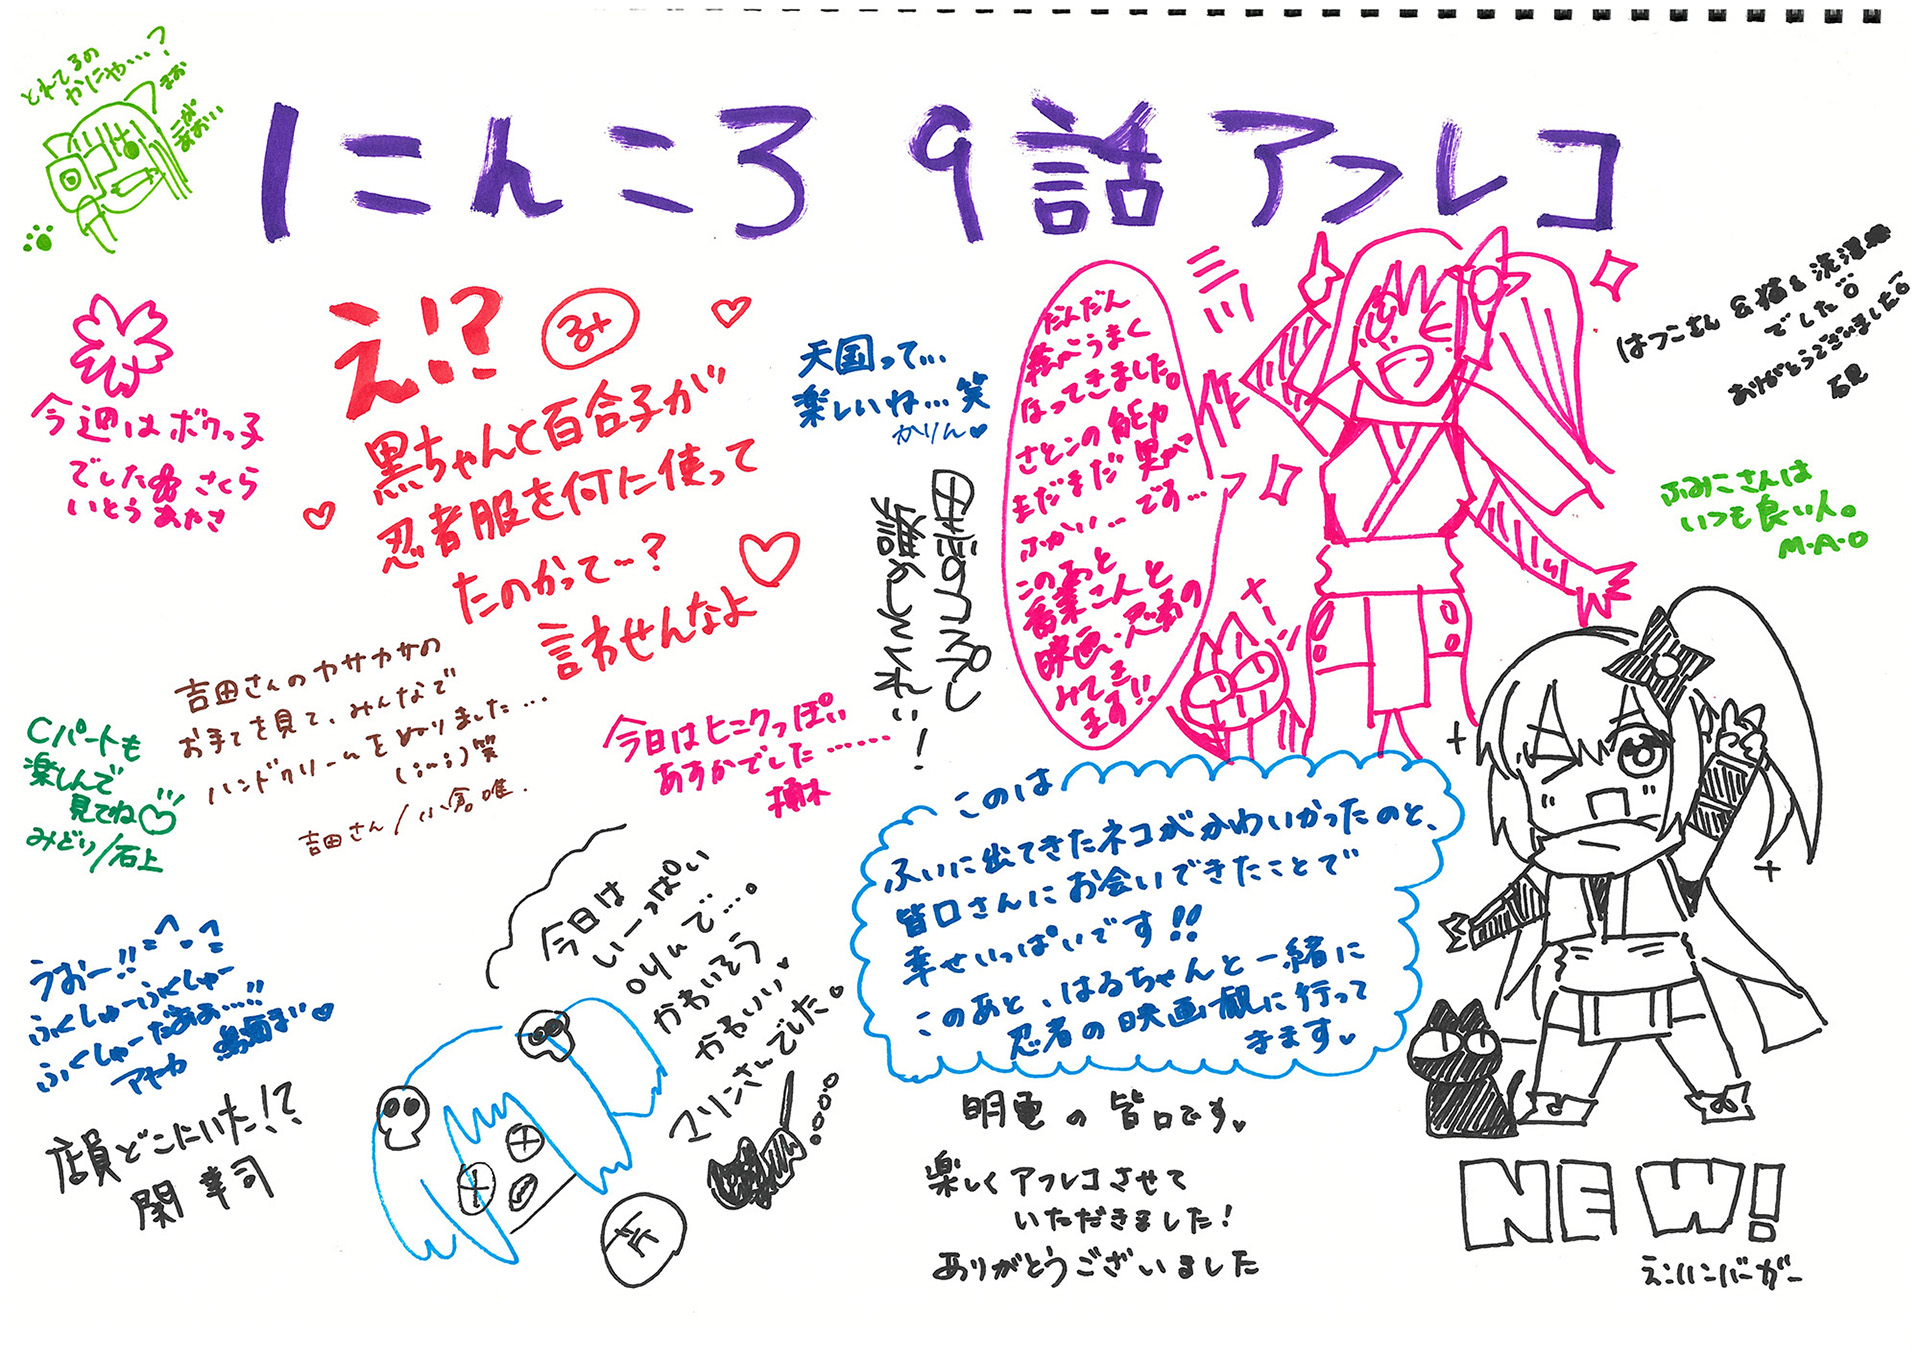 とれてるの
かにゃ…?
まお
にんころ 9話アフレコ
え!?
黒ちゃんと百合子が
忍者服を何に使って
たのかって…?
言わせんなよ
今週はボクっ子
でした
さくら
いとうあすさ
天国って…
楽しいね…笑
かりん
だんだん
絵がうまく
なってきました。
さとこの
まだまだ
ふかい…です…
このあと
映画、忍者の
みてき
ます!!
作
はつこさん &猫&洗濯機
でした
ありがとうございました
石見
ふみこさんは
いつも良い人。
M・A・O
吉田さんのカサカサの
お手てを見て、みんなで
ハンドクリームをぬりました…
(;ω;)笑
吉田さん/小倉唯.
Cパートも
楽しんで
見てね
みどり/石上
今日はヒニクっぽい
あすかでした……
うおー!!
ふくしゅーふくしゅー
ふくしゅーだぁぁ…!!
アヤカ
店員どこにいた!?
関幸司
今日は
いーっぱい
かわいそう
かわいい
マリンさんでした
このは
ふいに出てきたネコがかわいかったのと、
皆口さんにお会いできたことで
幸せいっぱいです!!
このあと、はるちゃんと一緒に
忍者の映画観に行って
きます
の皆口です。
楽しくアフレコさせて
いただきました!
ありがとうございました
NEW!
えːハンバーガー